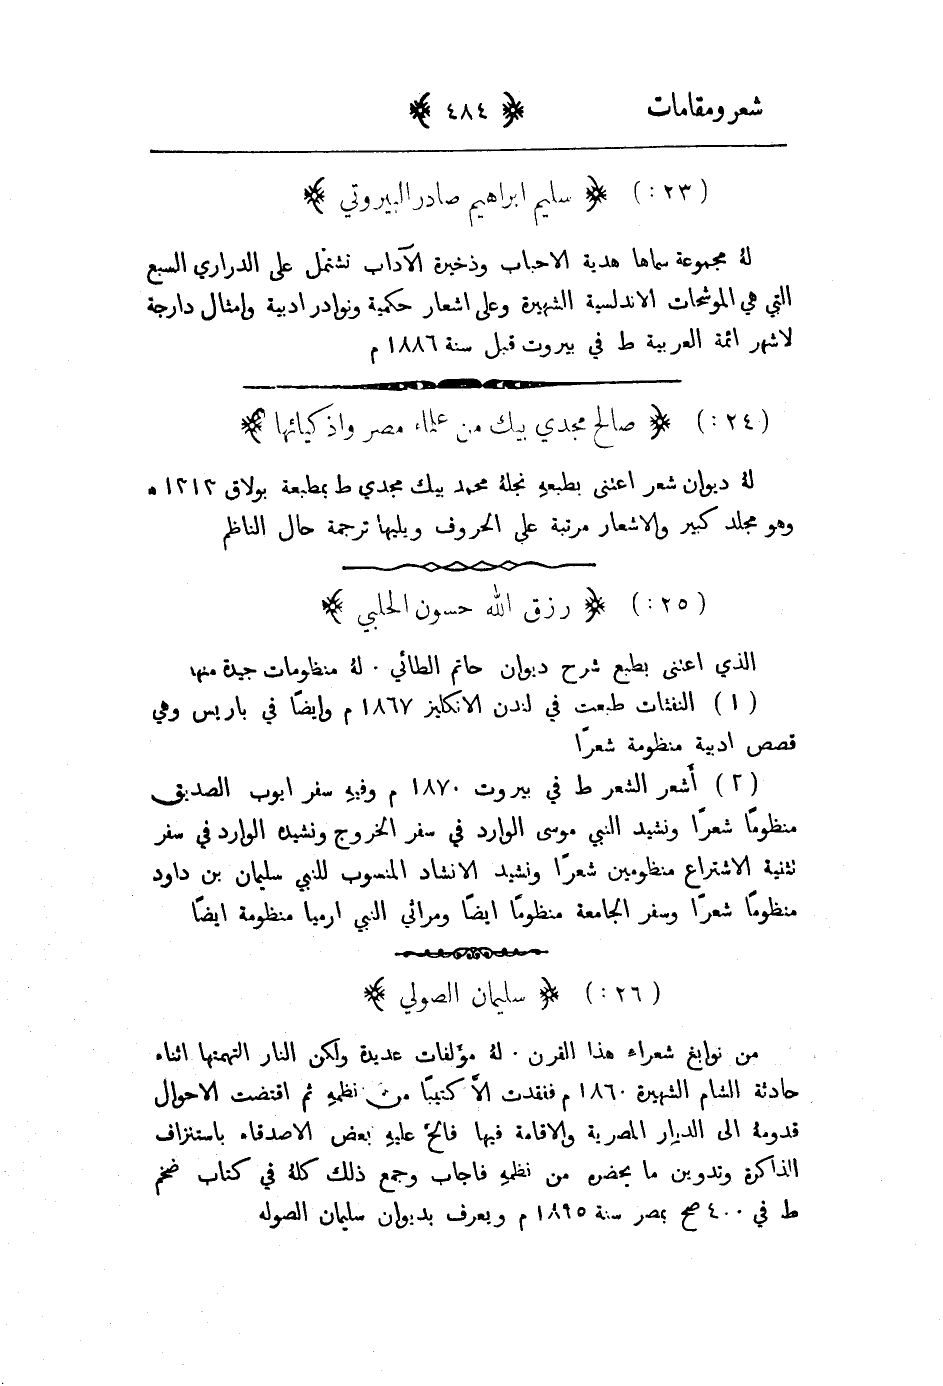 شعر ومقامات ﴿ ٤٨٤ ﴾
( ٢٣ : ) ﴿ سليم ابراهيم صادر البيروتي ﴾
لهُ مجموعة سماها هدية الاحباب وذخيرة الآداب تشتمل على الدراري السبع
التي هي الموشحات الاندلسية الشهيرة وعلى اشعار حكمية ونوادر ادبية وامثال دارجة
لاشهر ائمة العربية ط في بيروت قبل سنة ١٨٨٦ م
( ٢٤ : ) ﴿ صالح مجدي بيك من علماء مصر واذكيائها ﴾
لهُ ديوان شعر اعتنى بطبعهِ نجلهُ محمد بيك مجدي ط بمطبعة بولاق ١٣١٢ ه
وهو مجلد كبير والاشعار مرتبة على الحروف ويليها ترجمة حال الناظم
( ٢٥ : ) ﴿ رزق الله حسون الحلبي ﴾
الذي اعتنى بطبع شرح ديوان حاتم الطائي . لهُ منظومات جيدة منها
( ١ ) النفثات طبعت في لندن الانكليز ١٨٦٧ م وايضًا في باريس وهي
قصص ادبية منظومة شعرًا
( ٢ ) أشعر الشعر ط في بيروت ١٨٧٠ م وفيهِ سفر ايوب الصديق
منظومًا شعرًا ونشيد النبي موسى الوارد في سفر الخروج ونشيده الوارد في سفر
تثنية الاشتراع منظومين شعرًا ونشيد الانشاد المنسوب للنبي سليمان بن داود
منظومًا شعرًا وسفر الجامعة منظومًا ايضًا ومراثي النبي ارميا منظومة ايضًا
( ٢٦ : ) ﴿ سليمان الصولي ﴾
من نوابغ شعراء هذا القرن . لهُ مؤلفات عديدة ولكن النار التهمتها اثناء
حادثة الشام الشهيرة ١٨٦٠ م ففقدت الاَّ كتيبًا من نظمهِ ثم اقتضت الاحوال
قدومهُ الى الديار المصرية والاقامة فيها فالحَّ عليهِ بعض الاصدقاء باستنزاف
الذاكرة وتدوين ما يحضره من نظمهِ فاجاب وجمع ذلك كلهُ في كتاب ضخم
ط في ٤٠٠ صح بمصر سنة ١٨٩٥ م ويعرف بديوان سليمان الصوله